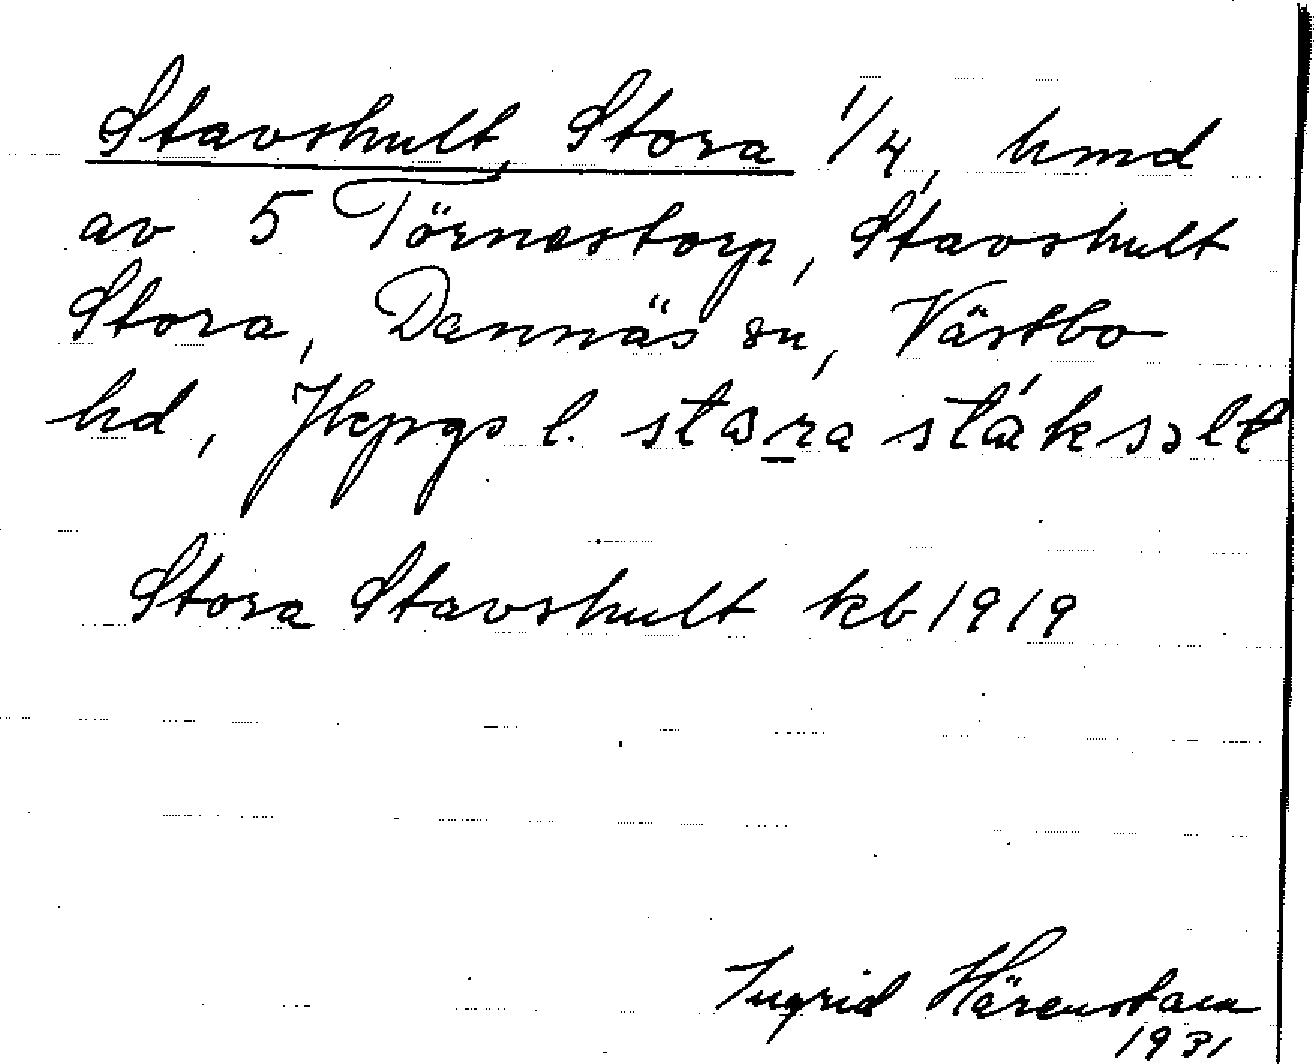 Stavshult, Stora 1/4, hmd
av 5 Törnestorp, Stavshult
Stora, Dannäs sn, Västbo
hd, Jkpgs l.
Stora Stavshult kb 1919
Ingrid Härenstam
1931